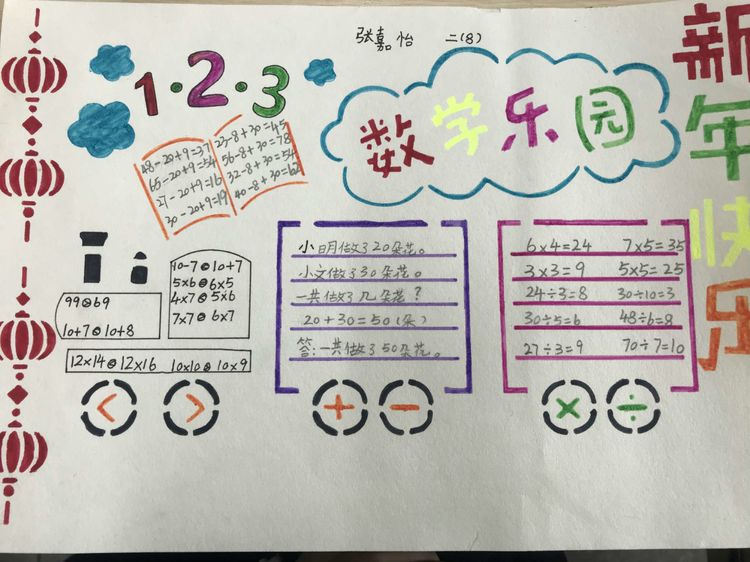 张嘉怡 二(8)
1·2·3
数学乐园
新年快乐
48-20+9=37
65-20+9=54
27-20+9=16
30-20+9=19
23-8+30=45
56-8+30=78
32-8+30=54
40-8+30=62
99 69
10+7 10+8
10-7 10+7
5×6 6×5
4×7 5×6
7×7 6×7
12×14 12×16 10×10 10×9
< >
小明做了20朵花。
小文做了30朵花。
一共做了几朵花?
20+30=50(朵)
答:一共做了50朵花。
+ -
6×4=24 7×5=35
3×3=9 5×5=25
24÷3=8 30÷10=3
30÷5=6 48÷6=8
27÷3=9 70÷7=10
× ÷